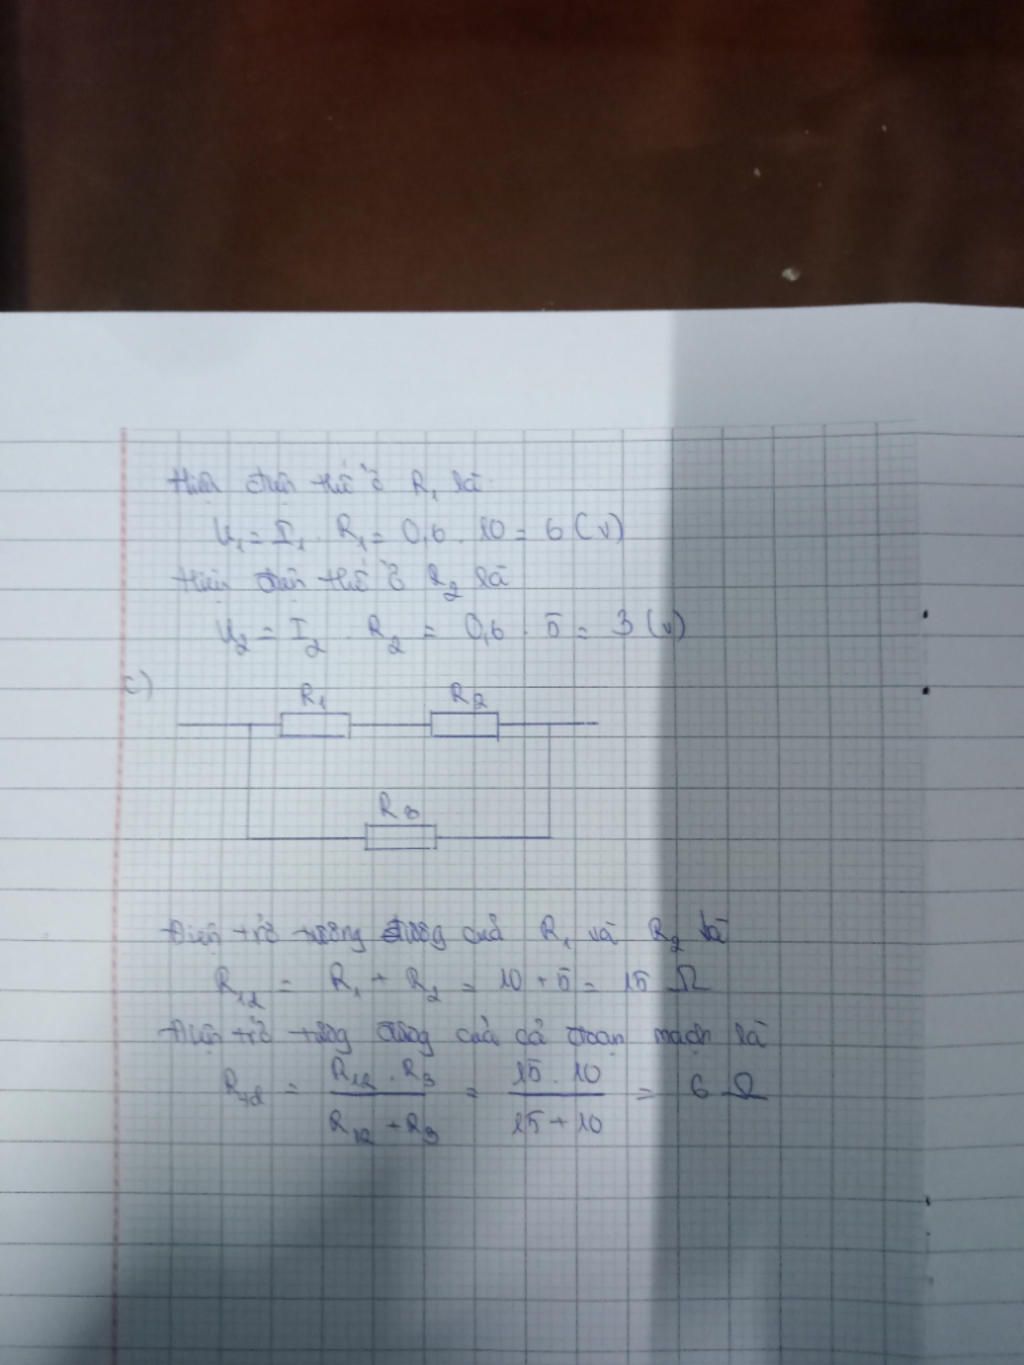 Hiệu điện thế ở R₁ là
U₁ = I₁ . R₁ = 0,6 . 10 = 6 (V)
Hiệu điện thế ở R₂ là
U₂ = I₂ . R₂ = 0,6 . 5 = 3 (V)
c)
R₁ R₂
R₃
Điện trở tương đương của R₁ và R₂ là
R₁₂ = R₁ + R₂ = 10 + 5 = 15 Ω
Điện trở tương đương của cả đoạn mạch là
Rtđ = R₁₂ . R₃ / R₁₂ + R₃ = 15 . 10 / 15 + 10 = 6 Ω